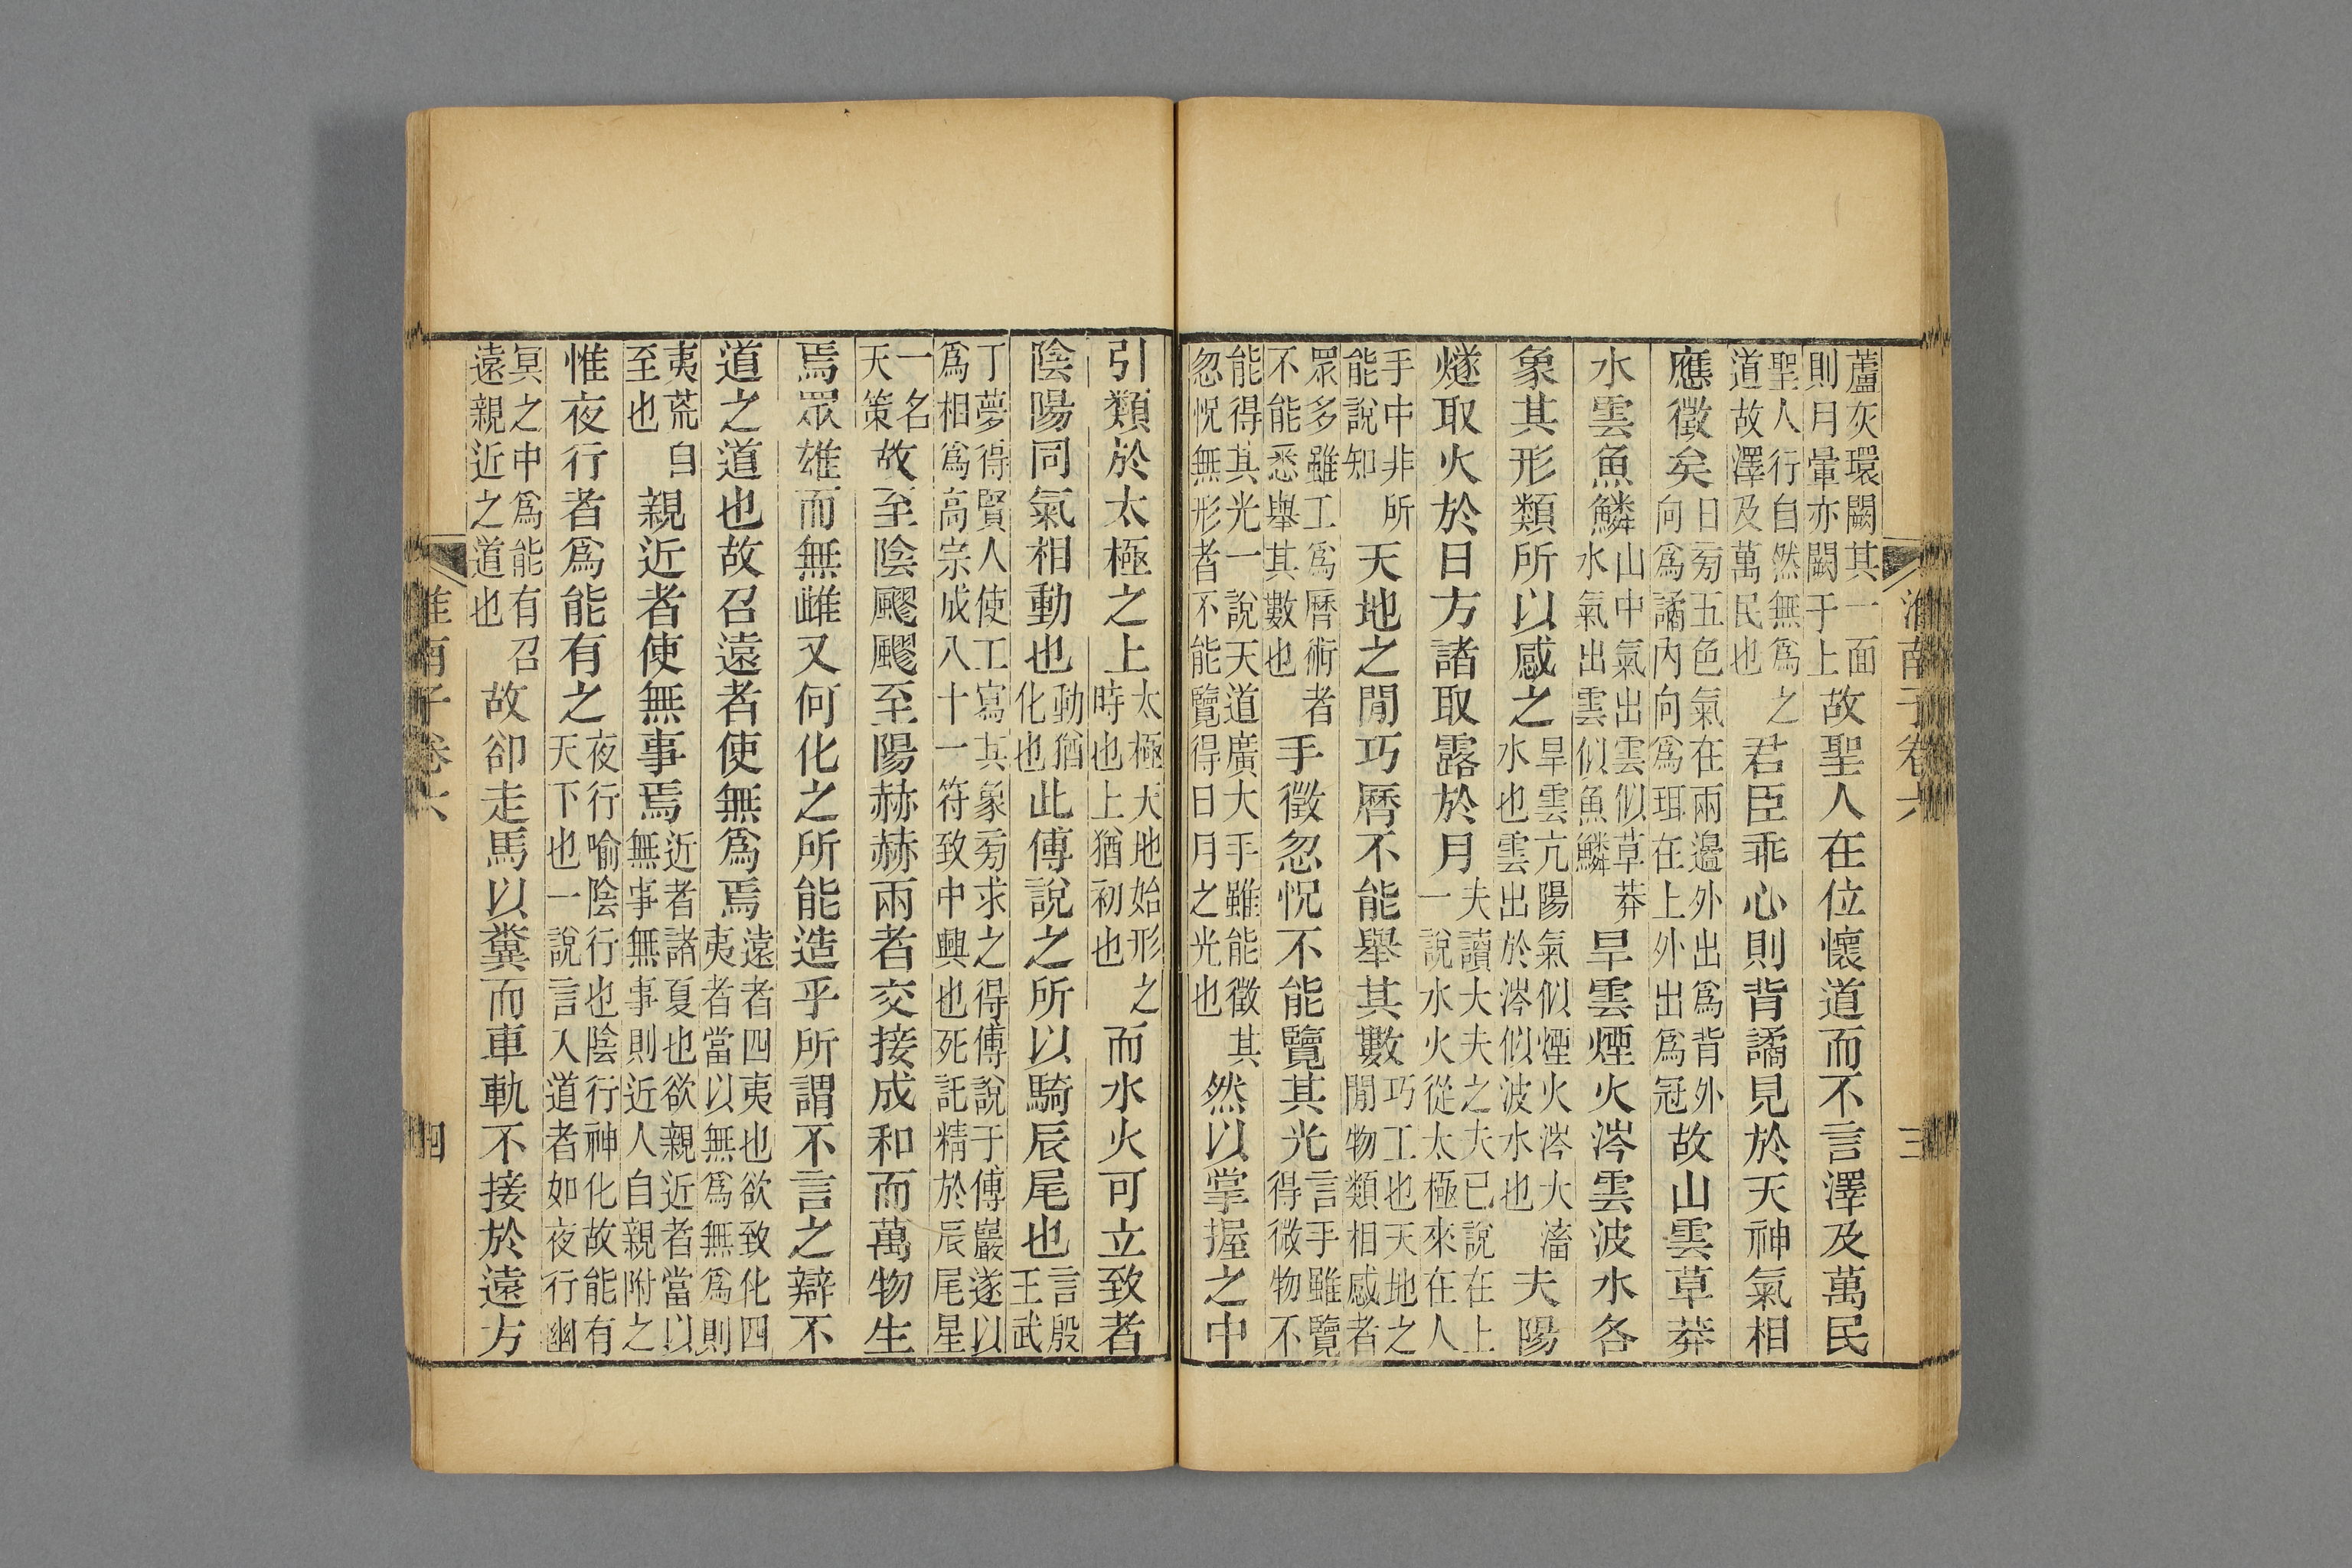 淮南子卷六
三
蘆灰環闕其一面
則月暈亦闕于上
故聖人在位懷道而不言澤及萬民
聖人行自然無爲之
道故澤及萬民也
君臣乖心則背譎見於天神氣相
應徵矣
日旁五色氣在兩邊外出爲背外
向爲譎內向爲珥在上外出爲冠
故山雲草莽
水雲魚鱗
山中氣出雲似草莽
水氣出雲似魚鱗
旱雲煙火涔雲波水各
象其形類所以感之
旱雲亢陽氣似煙火涔大滀
水也雲出於涔似波水也
夫陽
燧取火於日方諸取露於月
夫讀大夫之夫已說在上
一說水火從太極來在人
手中非所
能說知
天地之閒巧曆不能舉其數
巧工也天地之
閒物類相感者
眾多雖工爲曆術者
不能悉舉其數也
手徵忽怳不能覽其光
言手雖覽
得微物不
能得其光一說天道廣大手雖能徵其
忽怳無形者不能覽得日月之光也
然以掌握之中
引類於太極之上
太極天地始形之
時也上猶初也
而水火可立致者
陰陽同氣相動也
動猶
化也
此傅說之所以騎辰尾也
言殷
王武
丁夢得賢人使工寫其象旁求之得傅說于傅巖遂以
爲相爲高宗成八十一符致中興也死託精於辰尾星
一名
天策
故至陰飂飂至陽赫赫兩者交接成和而萬物生
焉眾雄而無雌又何化之所能造乎所謂不言之辯不
道之道也故召遠者使無爲焉
遠者四夷也欲致化四
夷者當以無爲無爲則
夷荒自
至也
親近者使無事焉
近者諸夏也欲親近者當以
無事無事則近人自親附之
惟夜行者爲能有之
夜行喻陰行也陰行神化故能有
天下也一說言入道者如夜行幽
冥之中爲能有召
遠親近之道也
故卻走馬以糞而車軌不接於遠方
淮南子卷六
四